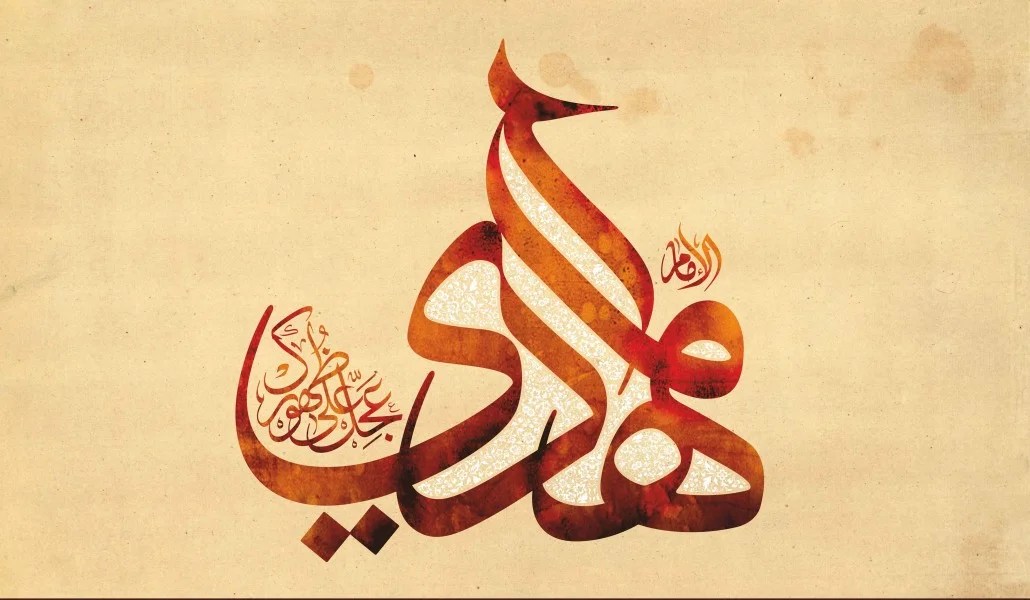 الإمام
مهدي
عَجِّل عَلى ظُهورِك